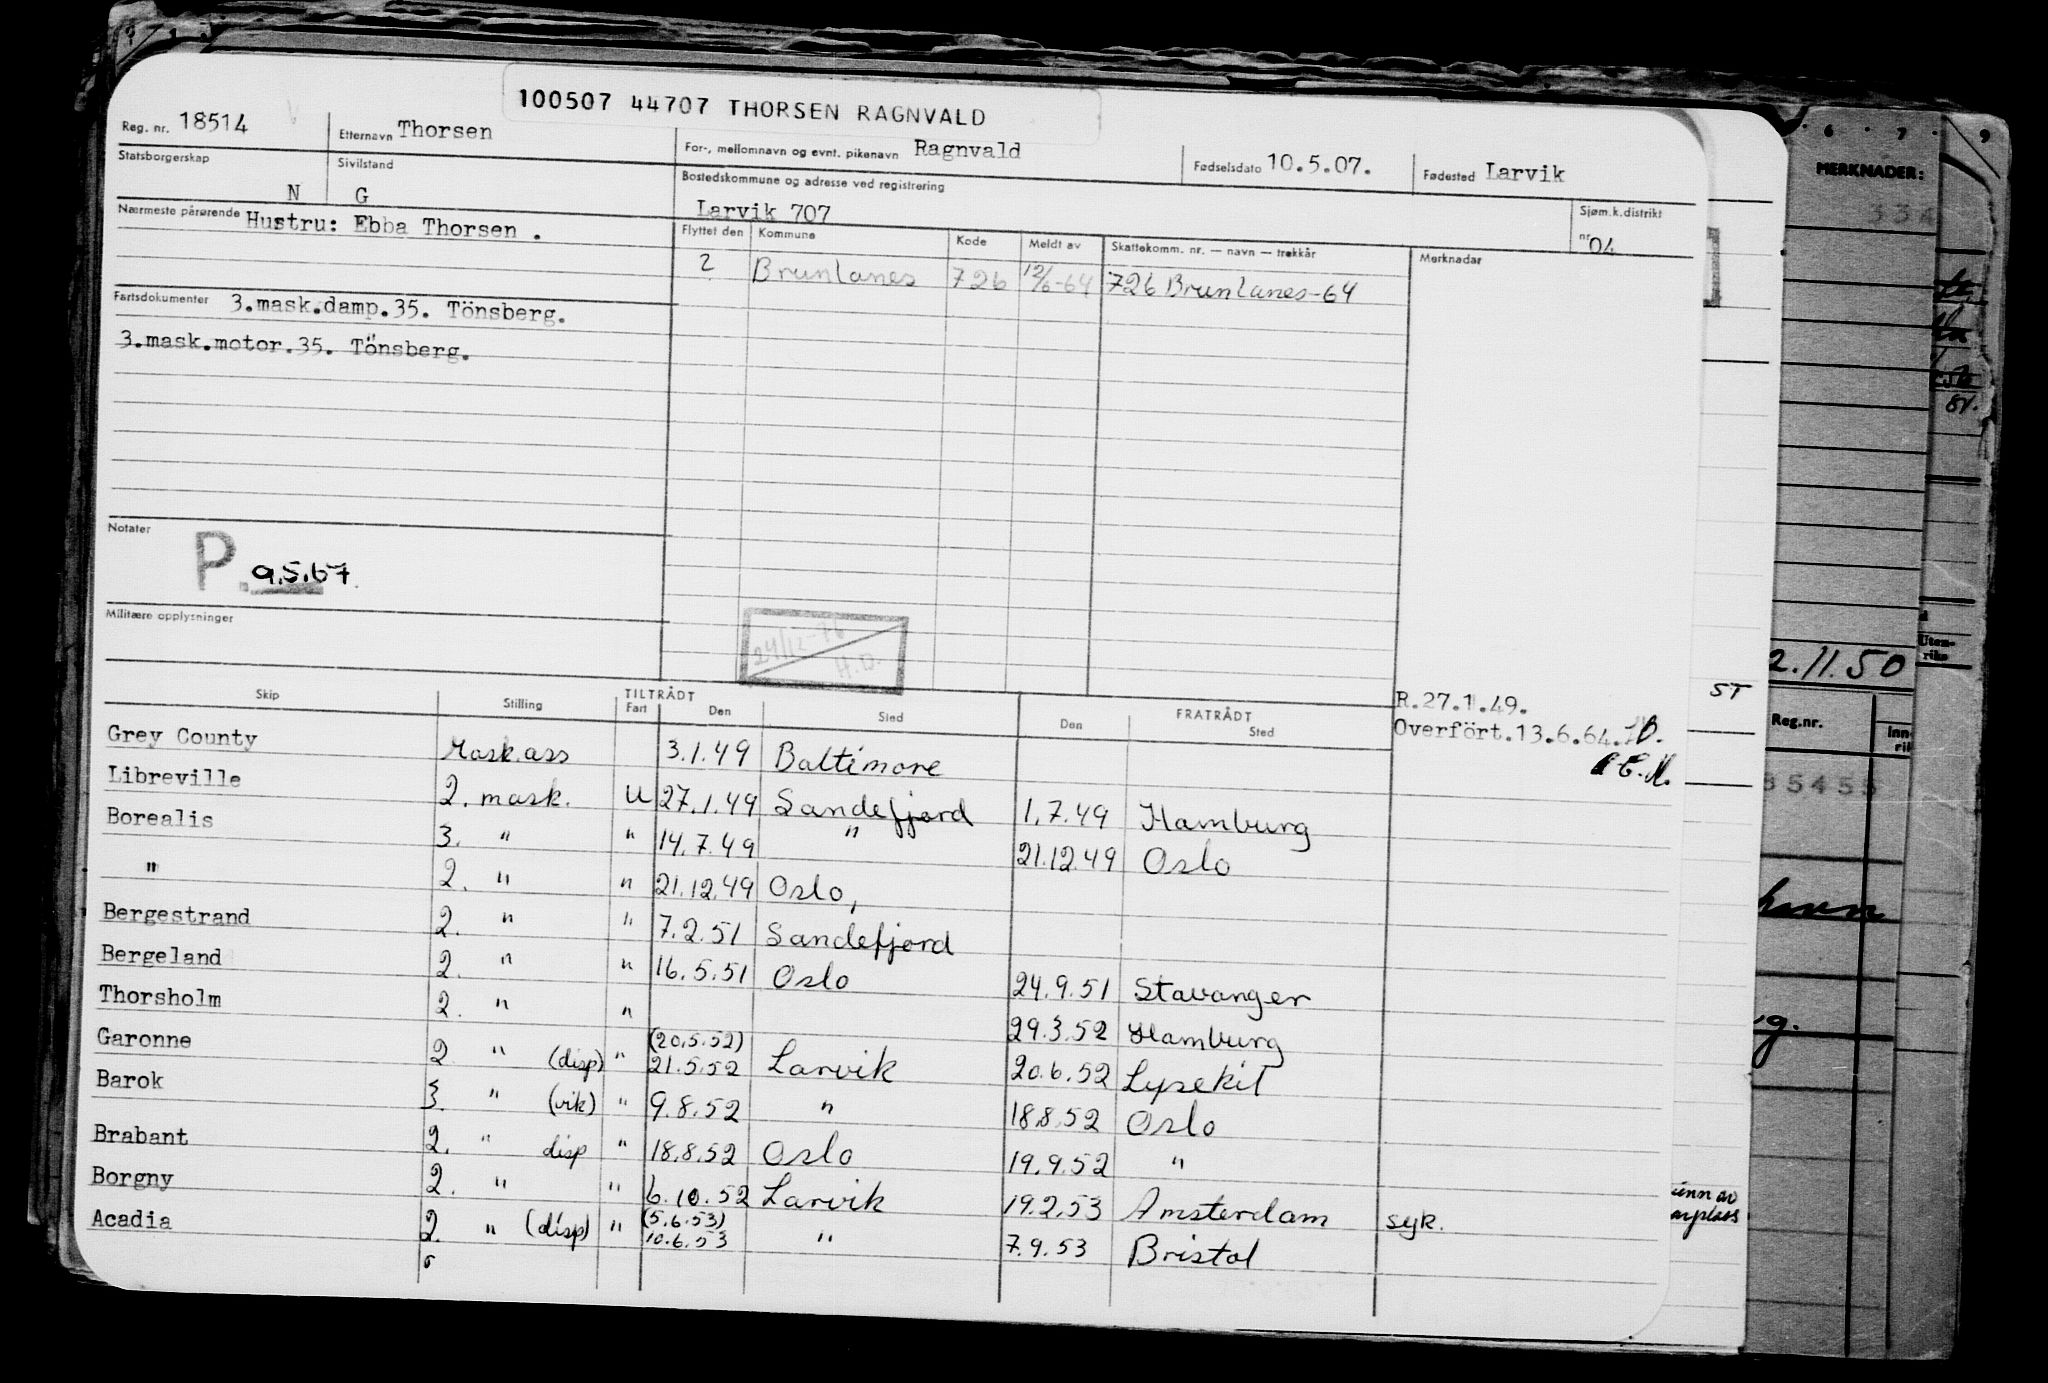 100507 44707 THORSEN RAGNVALD
Reg. nr. 18514 Etternavn Thorsen For-, mellomnavn og evnt. pikenavn Ragnvald Fødselsdato 10.5.07. Fødested Larvik
Statsborgerskap N Sivilstand G Bostedskommune og adresse ved registrering Larvik 707 Sjøm.k.distrikt nr 04
Nærmeste pårørende Hustru: Ebba Thorsen .
Flyttet den Kommune Kode Meldt av Skattekomm. nr. — navn — trekkår Merknader
2 Brunlanes 726 12/6-64 726 Brunlanes-64
Fartsdokumenter 3.mask.damp.35. Tönsberg.
3.mask.motor.35. Tönsberg.
Notater
P. 9.5.67.
Militære opplysninger
24/12-
H.D.
R.27.1.49.
Overfört.13.6.64.
TILTRÅDT FRATRÅDT
Skip Stilling Fart Den Sted Den Sted
Grey County Mask.ass 3.1.49 Baltimore
Libreville 2. mask. U 27.1.49 Sandefjord 1.7.49 Hamburg
Borealis 3. " " 14.7.49 " 21.12.49 Oslo
" 2. " " 21.12.49 Oslo,
Bergestrand 2. " " 7.2.51 Sandefjord
Bergeland 2. " " 16.5.51 Oslo 24.9.51 Stavanger
Thorsholm 2. " " 29.3.52 Hamburg
Garonne 2 " (disp) " (20.5.52) 21.5.52 Larvik 20.6.52 Lysekil
Barok 3. " (vik) " 9.8.52 " 18.8.52 Oslo
Brabant 2. " disp " 18.8.52 Oslo 19.9.52 "
Borgny 2. " " 6.10.52 Larvik 19.2.53 Amsterdam syk.
Acadia 2. " (disp) " (5.6.53) 10.6.53 " 7.9.53 Bristol
6 7 9
MERKNADER:
334
81.
Uten-
riks
2.11.50
ST
Reg.nr.
Inn-
85455